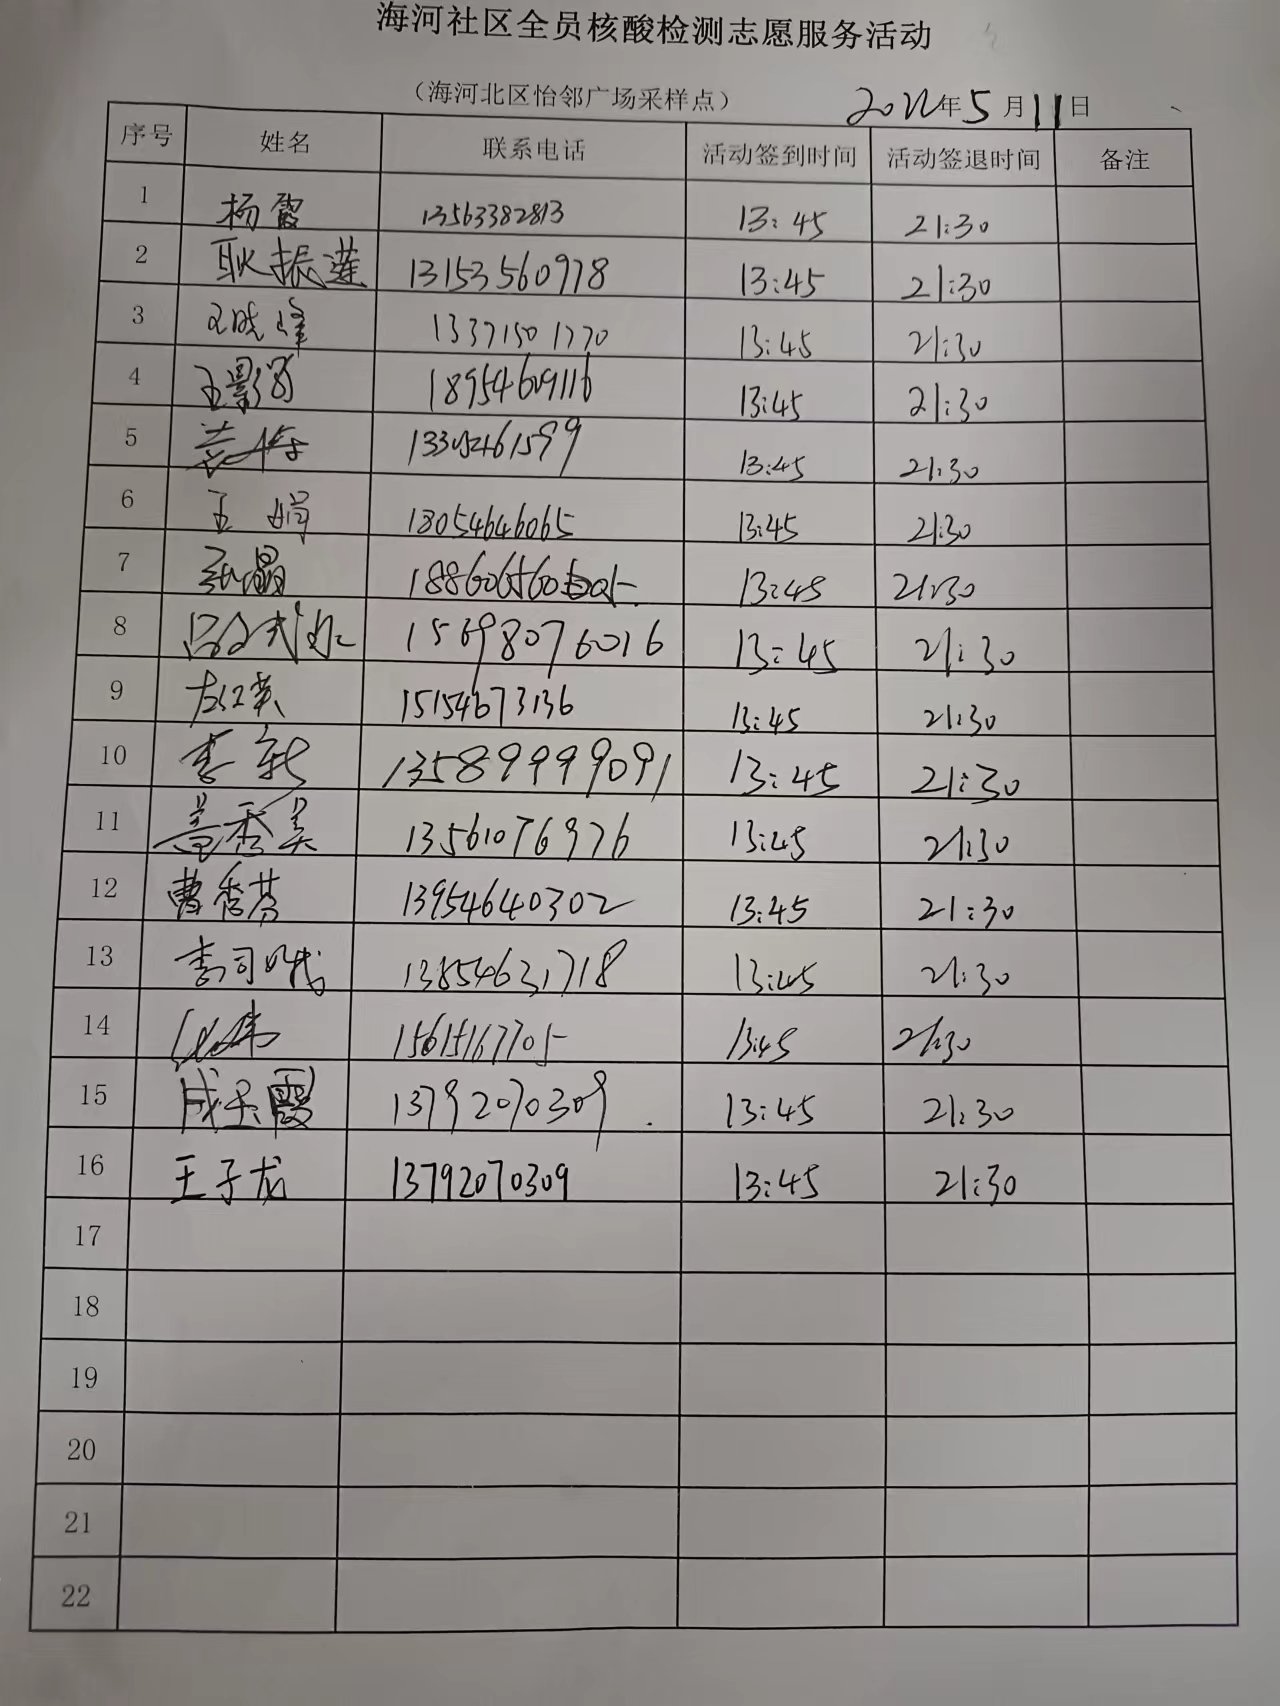 海河社区全员核酸检测志愿服务活动
（海河北区怡邻广场采样点） 2022年5月11日
序号 姓名 联系电话 活动签到时间 活动签退时间 备注
1 杨霞 13563382813 13:45 21:30
2 耿振莲 13153560978 13:45 21:30
3 王晓峰 13371501770 13:45 21:30
4 王影 18954609116 13:45 21:30
5 13:45 21:30
6 王娟 18054646065 13:45 21:30
7 张晶 13:45 21:30
8 15698076016 13:45 21:30
9 左红英 15154673136 13:45 21:30
10 李新 13589999091 13:45 21:30
11 盖秀美 13561076976 13:45 21:30
12 曹香芬 13954640302 13:45 21:30
13 李司晓 13854631718 13:45 21:30
14 15615167705 13:45 21:30
15 成玉霞 13792070309 13:45 21:30
16 王子龙 13792070309 13:45 21:30
17
18
19
20
21
22